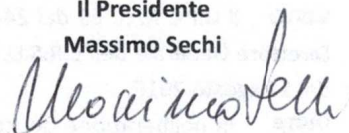 Il Presidente
Massimo Sechi
Massimo Sechi